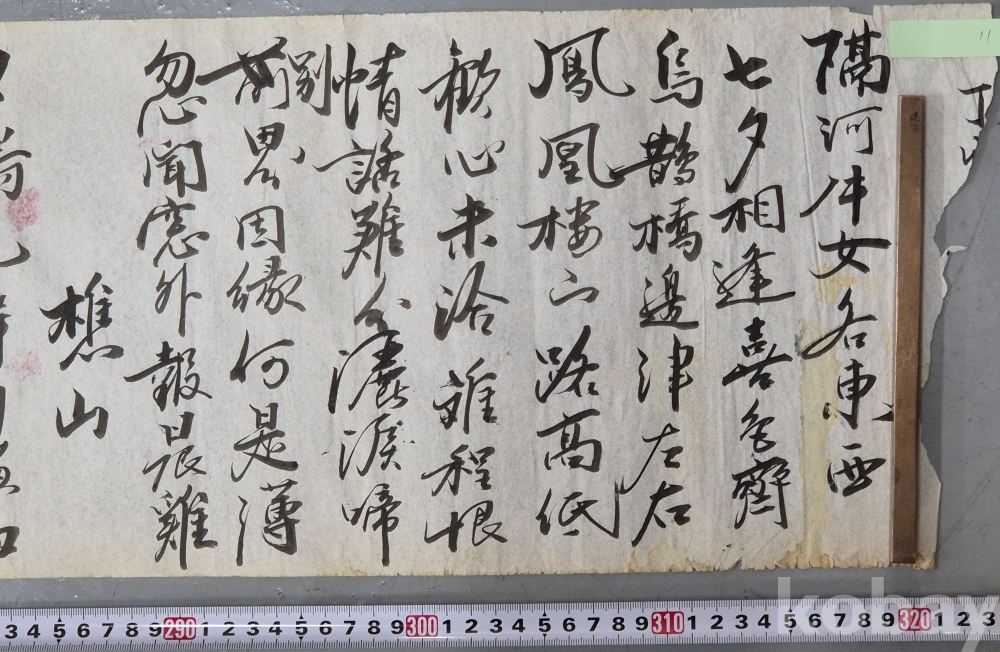 隔河牛女各東西
七夕相逢喜色齊
烏鵲橋邊津左右
鳳凰樓下路高低
歡心未洽難程恨
情話難分灑淚啼
前界因緣何是薄
別
忽聞窓外報晨雞
樵山
11
3 4 5 6 7 8 9 290 1 2 3 4 5 6 7 8 9 300 1 2 3 4 5 6 7 8 9 310 1 2 3 4 5 6 7 8 9 320 1 2 3
kobay